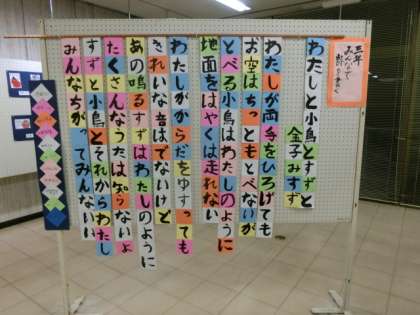 わたしと小鳥とすずと
金子みすず
わたしが両手をひろげても
お空はちっともとべないが
とべる小鳥はわたしのように
地面をはやくは走れない
わたしがからだをゆすっても
きれいな音はでないけど
あの鳴るすずはわたしのように
たくさんなうたは知らないよ
すずと小鳥とそれからわたし
みんなちがってみんないい
三年
みんなで